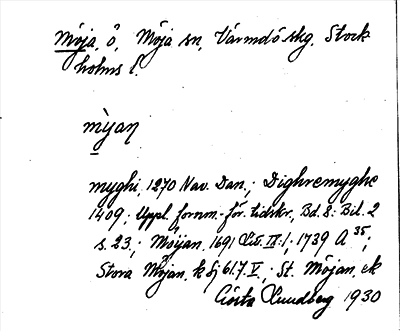 Möja, ö, Möja sn, Värmdö skg, Stock-
holms l.
mỳan
myghi, 1270 Nav. Dan.; Dighremyghe
1409; Uppl. fornm.-för. tidskr., Bd. 8: Bil. 2
s. 23.; Möijan, 1691 ; 1739 A 35;
Stora Möjan, k Sj 61.7.V; St. Möjan, ek
Gösta Lundberg 1930